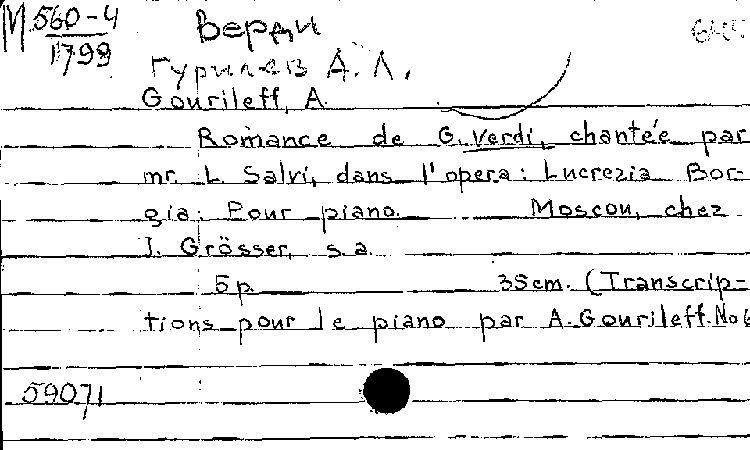 М 560-4
1799
Верди
Гурилев А. Л.
Gourileff, A.
Romance de G. Verdi, chantée par
mr. L. Salvi, dans l'opera: Lucrezia Bor-
gia: Pour piano. Moscou, chez
J. Grösser, s. a.
5 p. 35 cm. (Transcrip-
tions pour le piano par A. Gourileff. No 6
59071